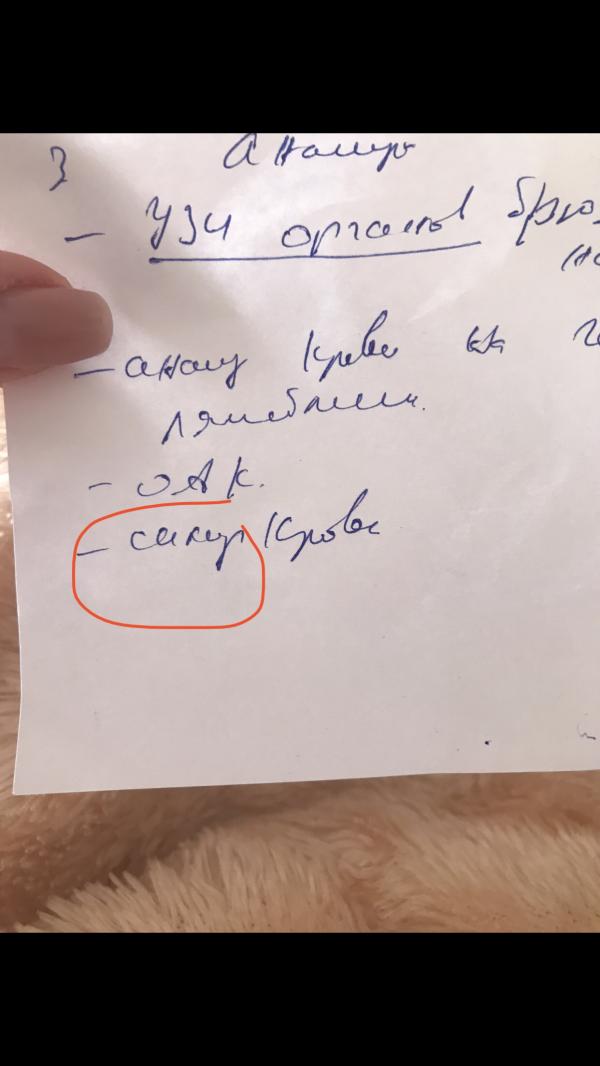 3 Анализы
- УЗИ органов брю
- анализ крови на
лямблии.
- ОАК.
- сахар крови